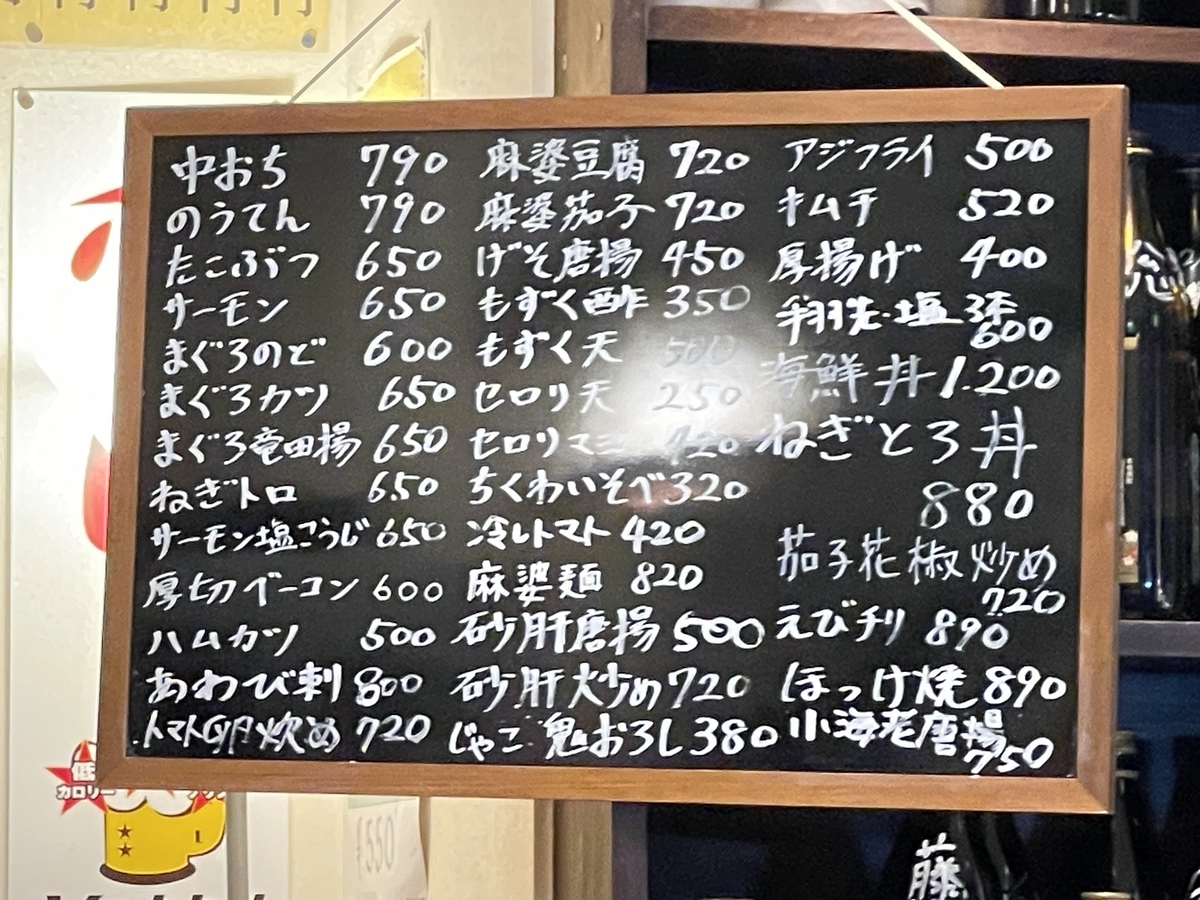 中おち 790
のうてん 790
たこぶつ 650
サーモン 650
まぐろのど 600
まぐろカツ 650
まぐろ竜田揚 650
ねぎトロ 650
サーモン塩こうじ 650
厚切ベーコン 600
ハムカツ 500
あわび刺 800
トマト卵炒め 720
麻婆豆腐 720
麻婆茄子 720
げそ唐揚 450
もずく酢 350
もずく天 500
セロリ天 250
セロリマヨ 420
ちくわいそべ 320
冷しトマト 420
麻婆麺 820
砂肝唐揚 500
砂肝炒め 720
じゃこ鬼おろし 380
アジフライ 500
キムチ 520
厚揚げ 400
手羽先・塩 3本
600
海鮮丼 1.200
ねぎとろ丼
880
茄子花椒炒め
720
えびチリ 890
ほっけ焼 890
小海老唐揚
750
低
カロリー
¥550
藤